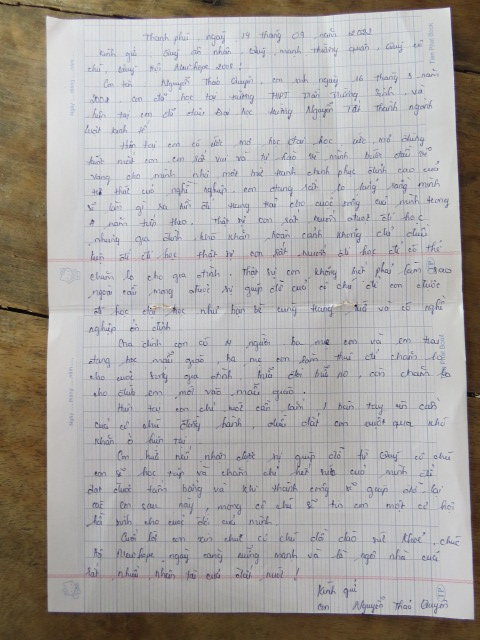 Thạnh phú ngày 19 tháng 09 năm 2022
Kính gửi Quý ân nhân, Quý mạnh thường quân, Quý cô
chú, Quý hội Newhope 2008!
Con tên Nguyễn Thảo Quyên, con sinh ngày 16 tháng 3 năm
2004 con đã học tại trường THPT Trần Trường Sinh và
hiện tại em đã trúng Đại học trường Nguyễn Tất Thành ngành
Luật kinh tế
Hiện tại em có ước mơ học đại học ước mơ
bước một con rất vui và tự hào vì mình bước đầu
vàng cho mình nhưng một chinh phục đỉnh cao của
tri thức của nghề nghiệp con đang rất lo lắng rằng mình
sẽ làm gì có tiền để trang trải cho cuộc sống của mình trong
4 năm tiếp theo. Thật sự con rất muốn được đi học
nhưng gia đình khó khăn hoàn cảnh không đủ điều
kiện để đi học thật sự con rất muốn đi học để có thể
chăm lo cho gia đình. Thật sự con không biết phải làm sao
ngoài cầu mong được sự giúp đỡ của cô chú để con được
đi học đại học như bạn bè cùng trang lứa và có nghề
nghiệp ổn định
Gia đình con có 4 người ba mẹ con và em trai
đang học mẫu giáo ba mẹ con làm thuê để chăm lo
cho cuộc sống gia đình, còn chăm lo
cho đứa em mới vào mẫu giáo.
Hiện tại con chỉ cần lắm 1 bàn tay
của cô chú đồng hành, dìu dắt con vượt qua khó
khăn ở hiện tại
Con hứa nếu nhận được sự giúp đỡ từ Quý cô chú
con sẽ học tập và chăm chỉ hết sức của mình để
đạt được tấm bằng và khi thành công sẽ giúp đỡ lại
các em sau này, mong cô chú sẽ tin con một cơ hội
hồi sinh cho cuộc đời của mình.
Cuối lời con xin chúc cô chú dồi dào sức khoẻ, chúc
hội Newhope ngày càng vững mạnh và là ngôi nhà của
rất nhiều nhân tài của đất nước!
Kính quí
con Nguyễn Thảo Quyên